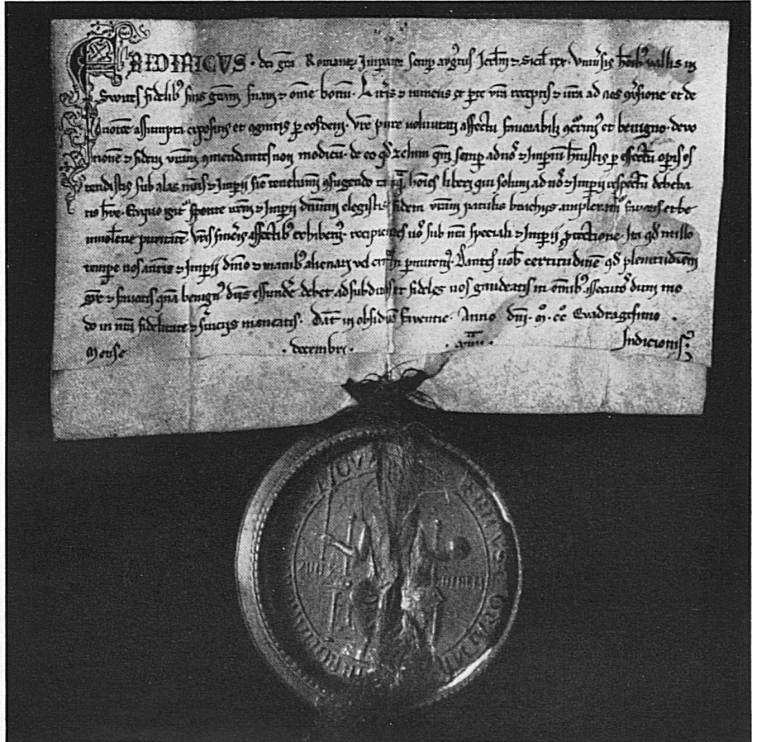 FRIDIRICVS · dei gra Romanor Impator semp augustus Jerlm et Sicil rex · Uniusis hoib vallis in
Swites fidelib suis gram suam et omne bonum · Litis et nunciis ex pte vra receptis et vra ad nos Ꝯusione et de
uotione assumpta expositis et cognitis p eosdem · Vre pure voluntati affectu fauorabili Ꝯcurrim et benigno · deuo
tionem et fidem vram Ꝯmendantes non modicum · de eo qd zelum quem semp ad nos et Impium huistis p effectu opis os
tendistis sub alas nras et Impii sic tenebamini Ꝯfugiendo tamq hoies liberi qui solum ad nos et Impii respectu debeba
tis hre · Ex quo igit sponte nrm et Impii dnium elegistis fidem vram patulis brachiis amplexam fauoris et be
niuolencie puritate Vris sinceris affectib exhibem · recipientes uos sub nra speciali et Impii ptectione · Ita qd nullo
tempe uos a nris et Impii dnio et manib alienari vel extrahi pmittem · Dantes uob certitudine qd plenitudinem
gre et fauoris qua benign dns effundere debet ad subditos et fideles uos gaudeatis in omib assecutos dum mo
do in nra fidelitate et seruiciis maneatis · Dat in obsidione fauentie · Anno dni · M · CC Quadragesimo ·
Mense · decembri · · XIIII · Indictionis ·